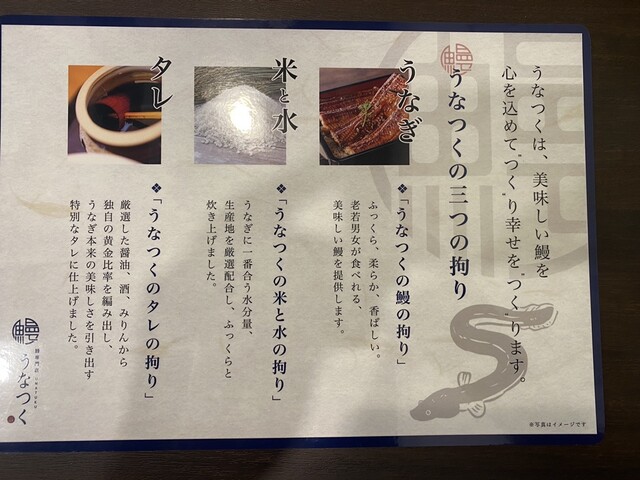 うなつくは、美味しい鰻を
心を込めて"つく"り幸せを"つく"ります。
うなつくの三つの拘り
うなぎ
❖「うなつくの鰻の拘り」
ふっくら、柔らか、香ばしい。
老若男女が食べれる、
美味しい鰻を提供します。
米と水
❖「うなつくの米と水の拘り」
うなぎに一番合う水分量、
生産地を厳選配合し、ふっくらと
炊き上げました。
タレ
❖「うなつくのタレの拘り」
厳選した醤油、酒、みりんから
独自の黄金比率を編み出し、
うなぎ本来の美味しさを引き出す
特別なタレに仕上げました。
鰻
鰻専門店 UNATSUKU
うなつく
※写真はイメージです